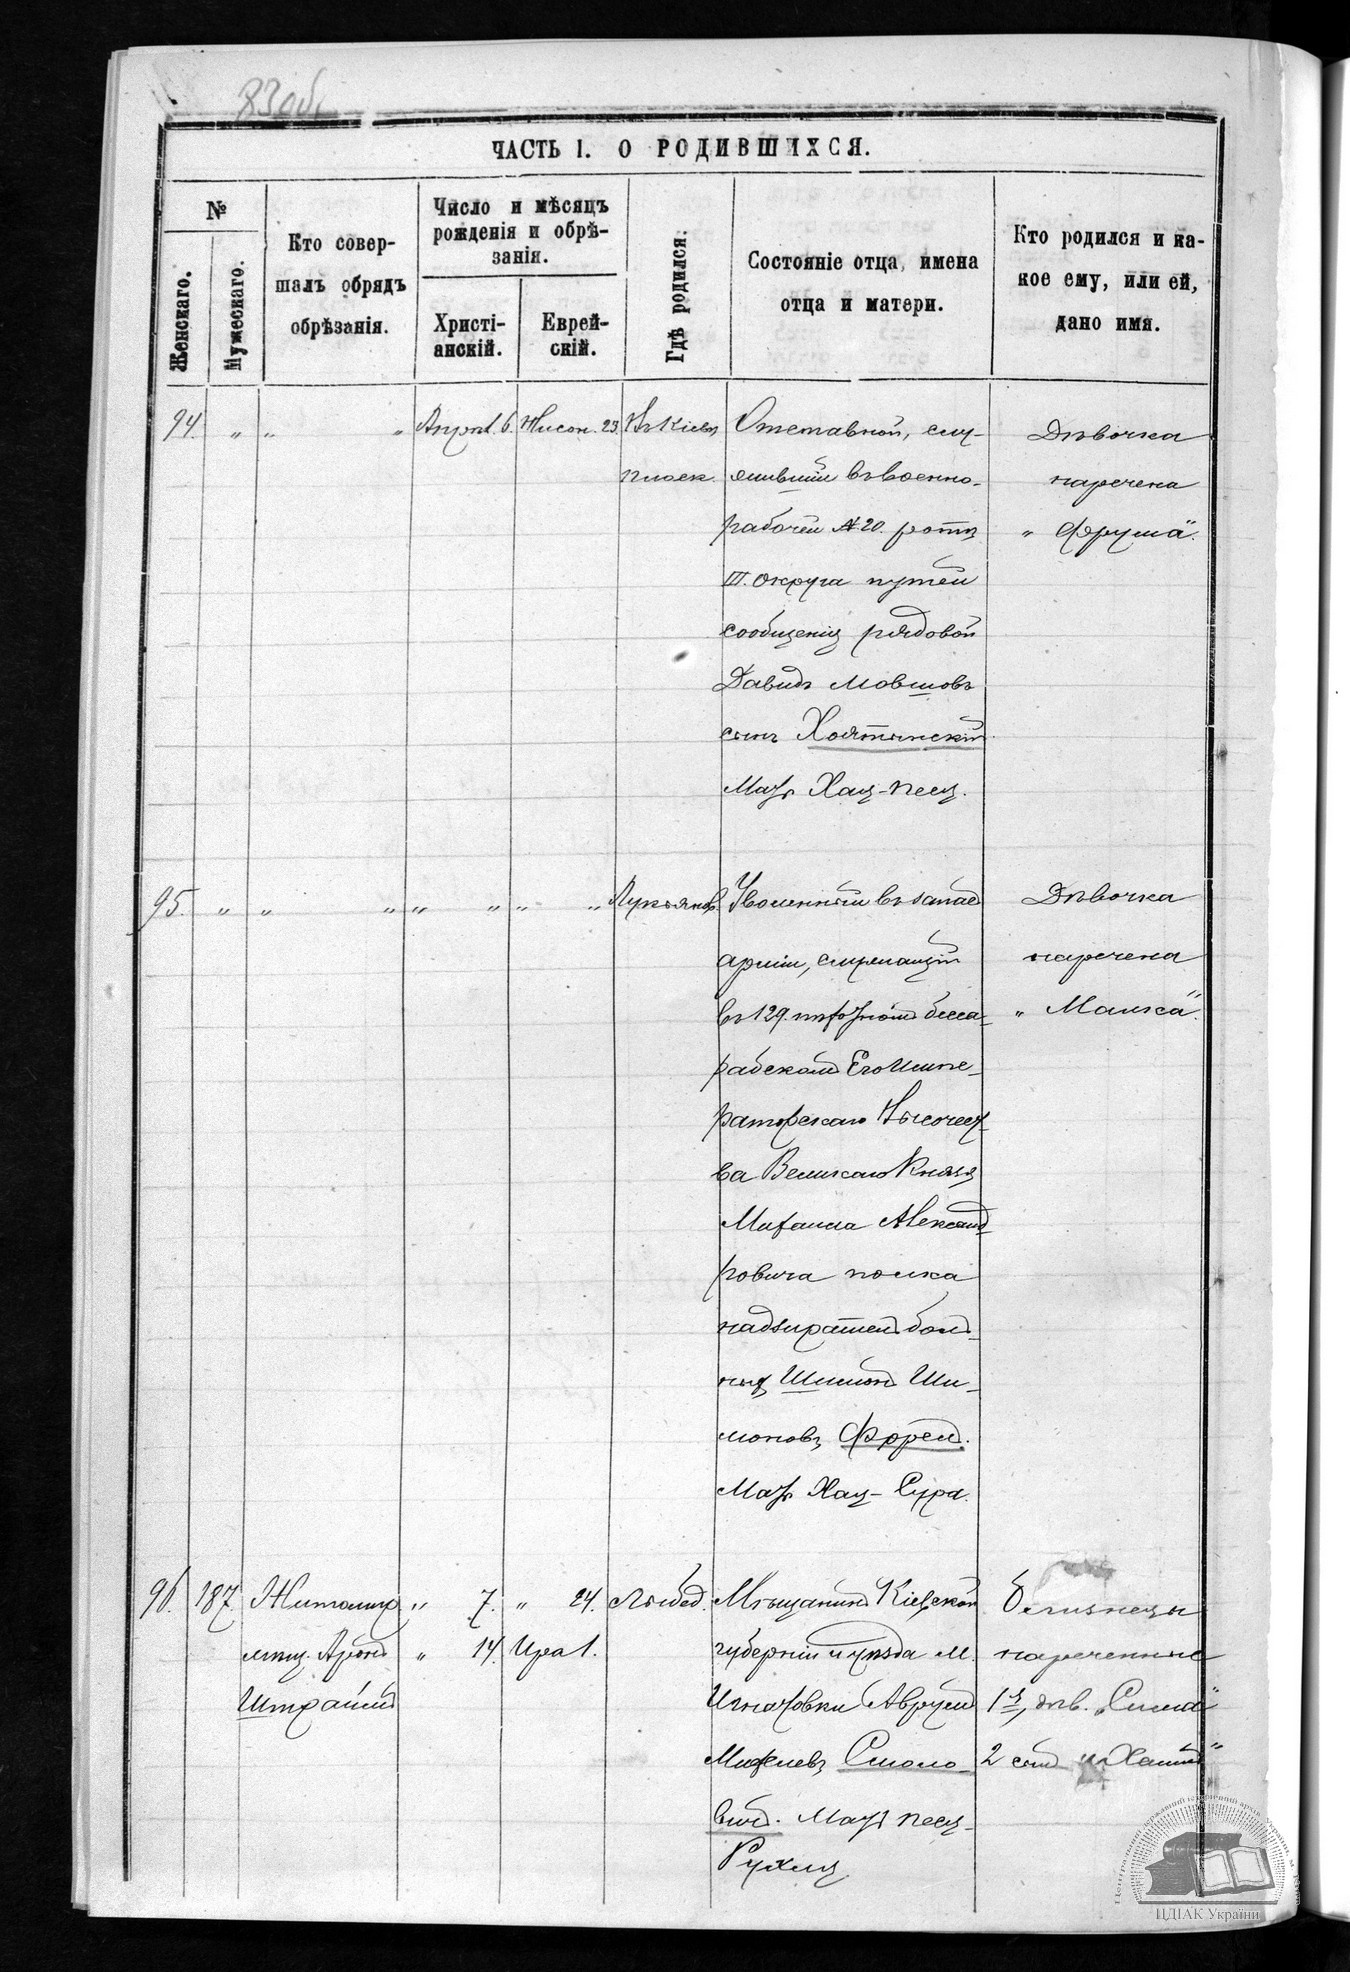 83 об.
ЧАСТЬ I. О РОДИВШИХСЯ.
№
Женскаго.
Мужескаго.
Кто совер-
шалъ обрядъ
обрѣзанія.
Число и мѣсяцъ
рожденія и обрѣ-
занія.
Христі-
анскій.
Еврей-
скій.
Гдѣ родился.
Состояніе отца, имена
отца и матери.
Кто родился и ка-
кое ему, или ей,
дано имя.
94. " " " Апрѣл. 6. Нисон. 23. Въ Кіевѣ
плоск.
Отставной, слу-
жившій въ военно-
рабочей № 20. ротѣ
III. округа путей
сообщенія рядовой
Давидъ Мовшовъ
сынъ
Мать Хая-Песя.
Дѣвочка
наречена
" Фрума".
95. " " " " " " " Лукьянов.
Уволенный въ запас
арміи, служащій
въ 129. пѣхотномъ бесса-
рабскомъ Его Импе-
раторскаго Высочест-
ва Великаго Князя
Михаила Александ-
ровича полка
надзиратель боль-
ныхъ Шимонъ Ши-
моновъ
Мать Хая-Сура.
Дѣвочка
наречена
" Малка".
96. 187. Житомир " 7. " 24. Лыбед.
мѣщ. Аронъ " 14. Ира 1.
Мѣщанинъ Кіевской
губерніи и уѣзда м.
Игнатовки Аврумъ
Михелевъ Смоло-
вич. Мать Песя-
Рухля
близнецы
нареченные
1я, дѣв. "Сима"
2 сынъ "Хаимъ"
ЦДІАК України